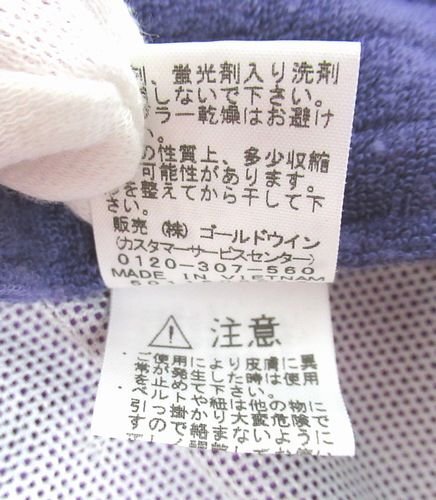 剤、蛍光剤入り洗剤
しないで下さい。
ラー乾燥はお避け
い。
の性質上、多少収縮
可能性があります。
を整えてから干して下
さい。
販売 (株) ゴールドウイン
(カスタマーサービス・センター)
0120-307-560
MADE IN VIETNAM
注意
・ご使用により皮膚に異
常が発生した時は使用
を止めて下さい。
・ベルトや紐は他の物に
引っ掛かり大変危険で
すので絡まないように